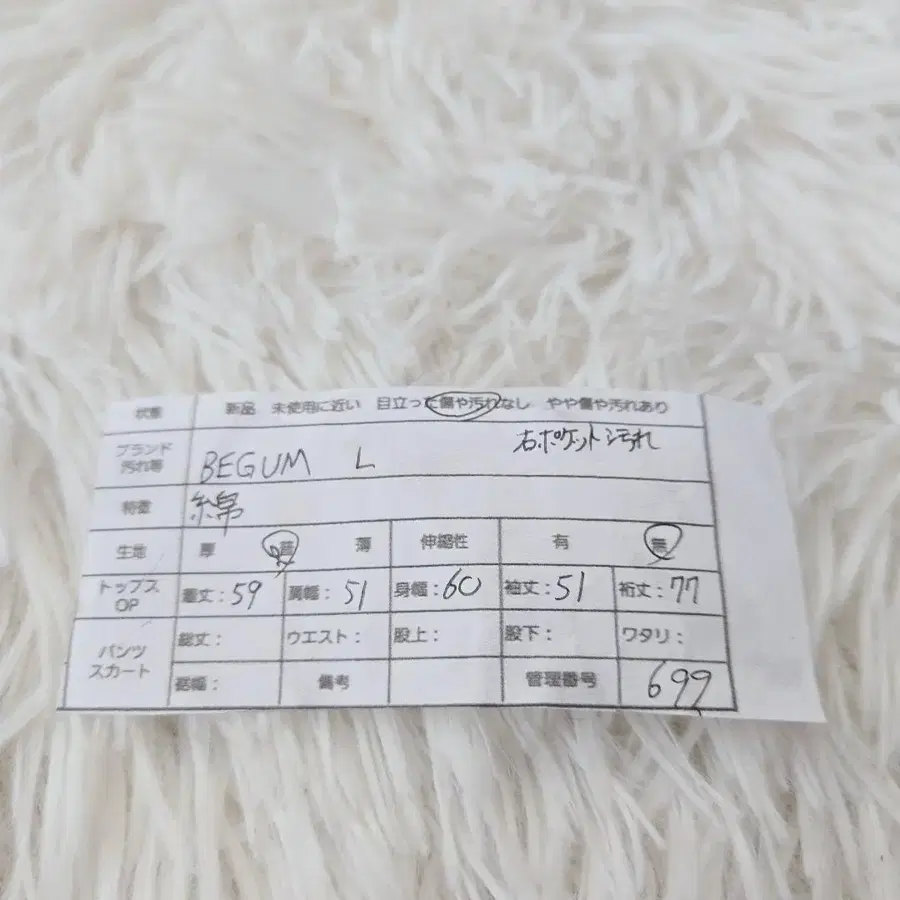 状態 新品 未使用に近い 目立った傷や汚れなし やや傷や汚れあり
ブランド 汚れ等 BEGUM L 右ポケット汚れ
特徴 綿
生地 厚 普 薄 伸縮性 有 無
トップス OP 着丈：59 肩幅：51 身幅：60 袖丈：51 裄丈：77
パンツ スカート 総丈： ウエスト： 股上： 股下： ワタリ：
裾幅： 備考 管理番号 699